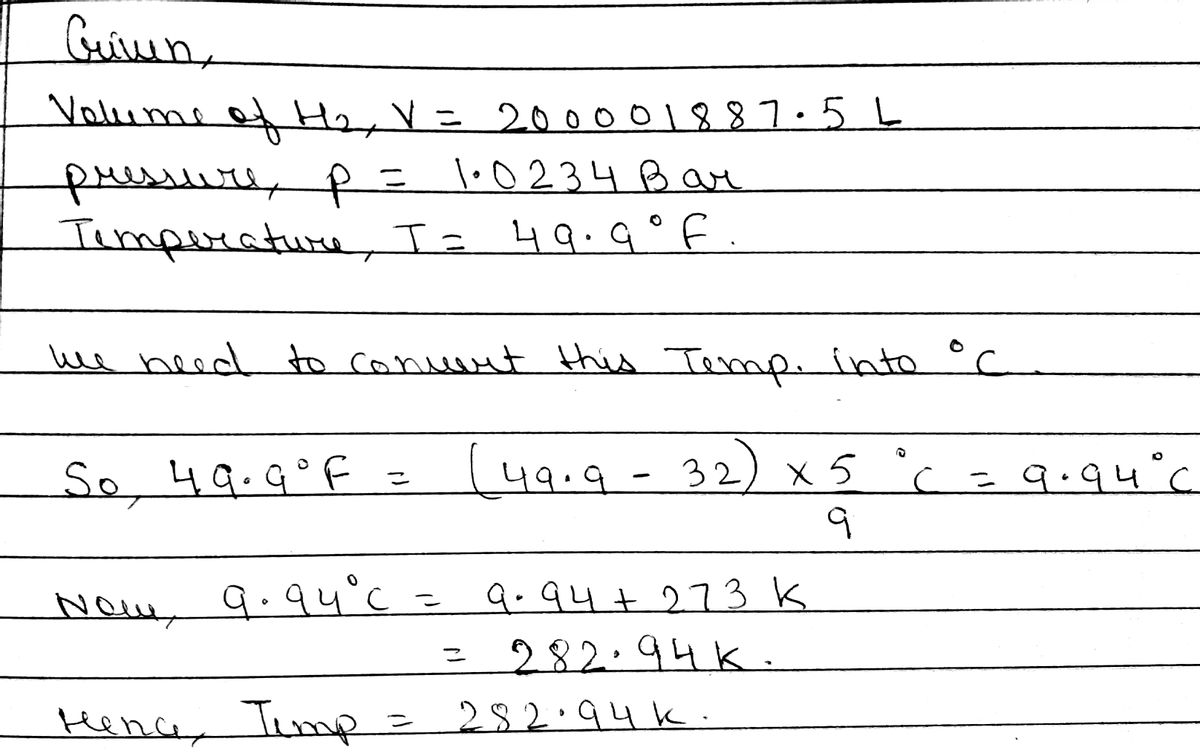 Given,
Volume of H2, V = 200001887.5 L
pressure, p = 1.0234 Bar
Temperature, T = 49.9°F.
We need to convert this Temp. into °C.
So, 49.9°F = (49.9 - 32) × 5/9 °C = 9.94°C
Now, 9.94°C = 9.94 + 273 K
= 282.94 K.
Hence, Temp = 282.94 K.